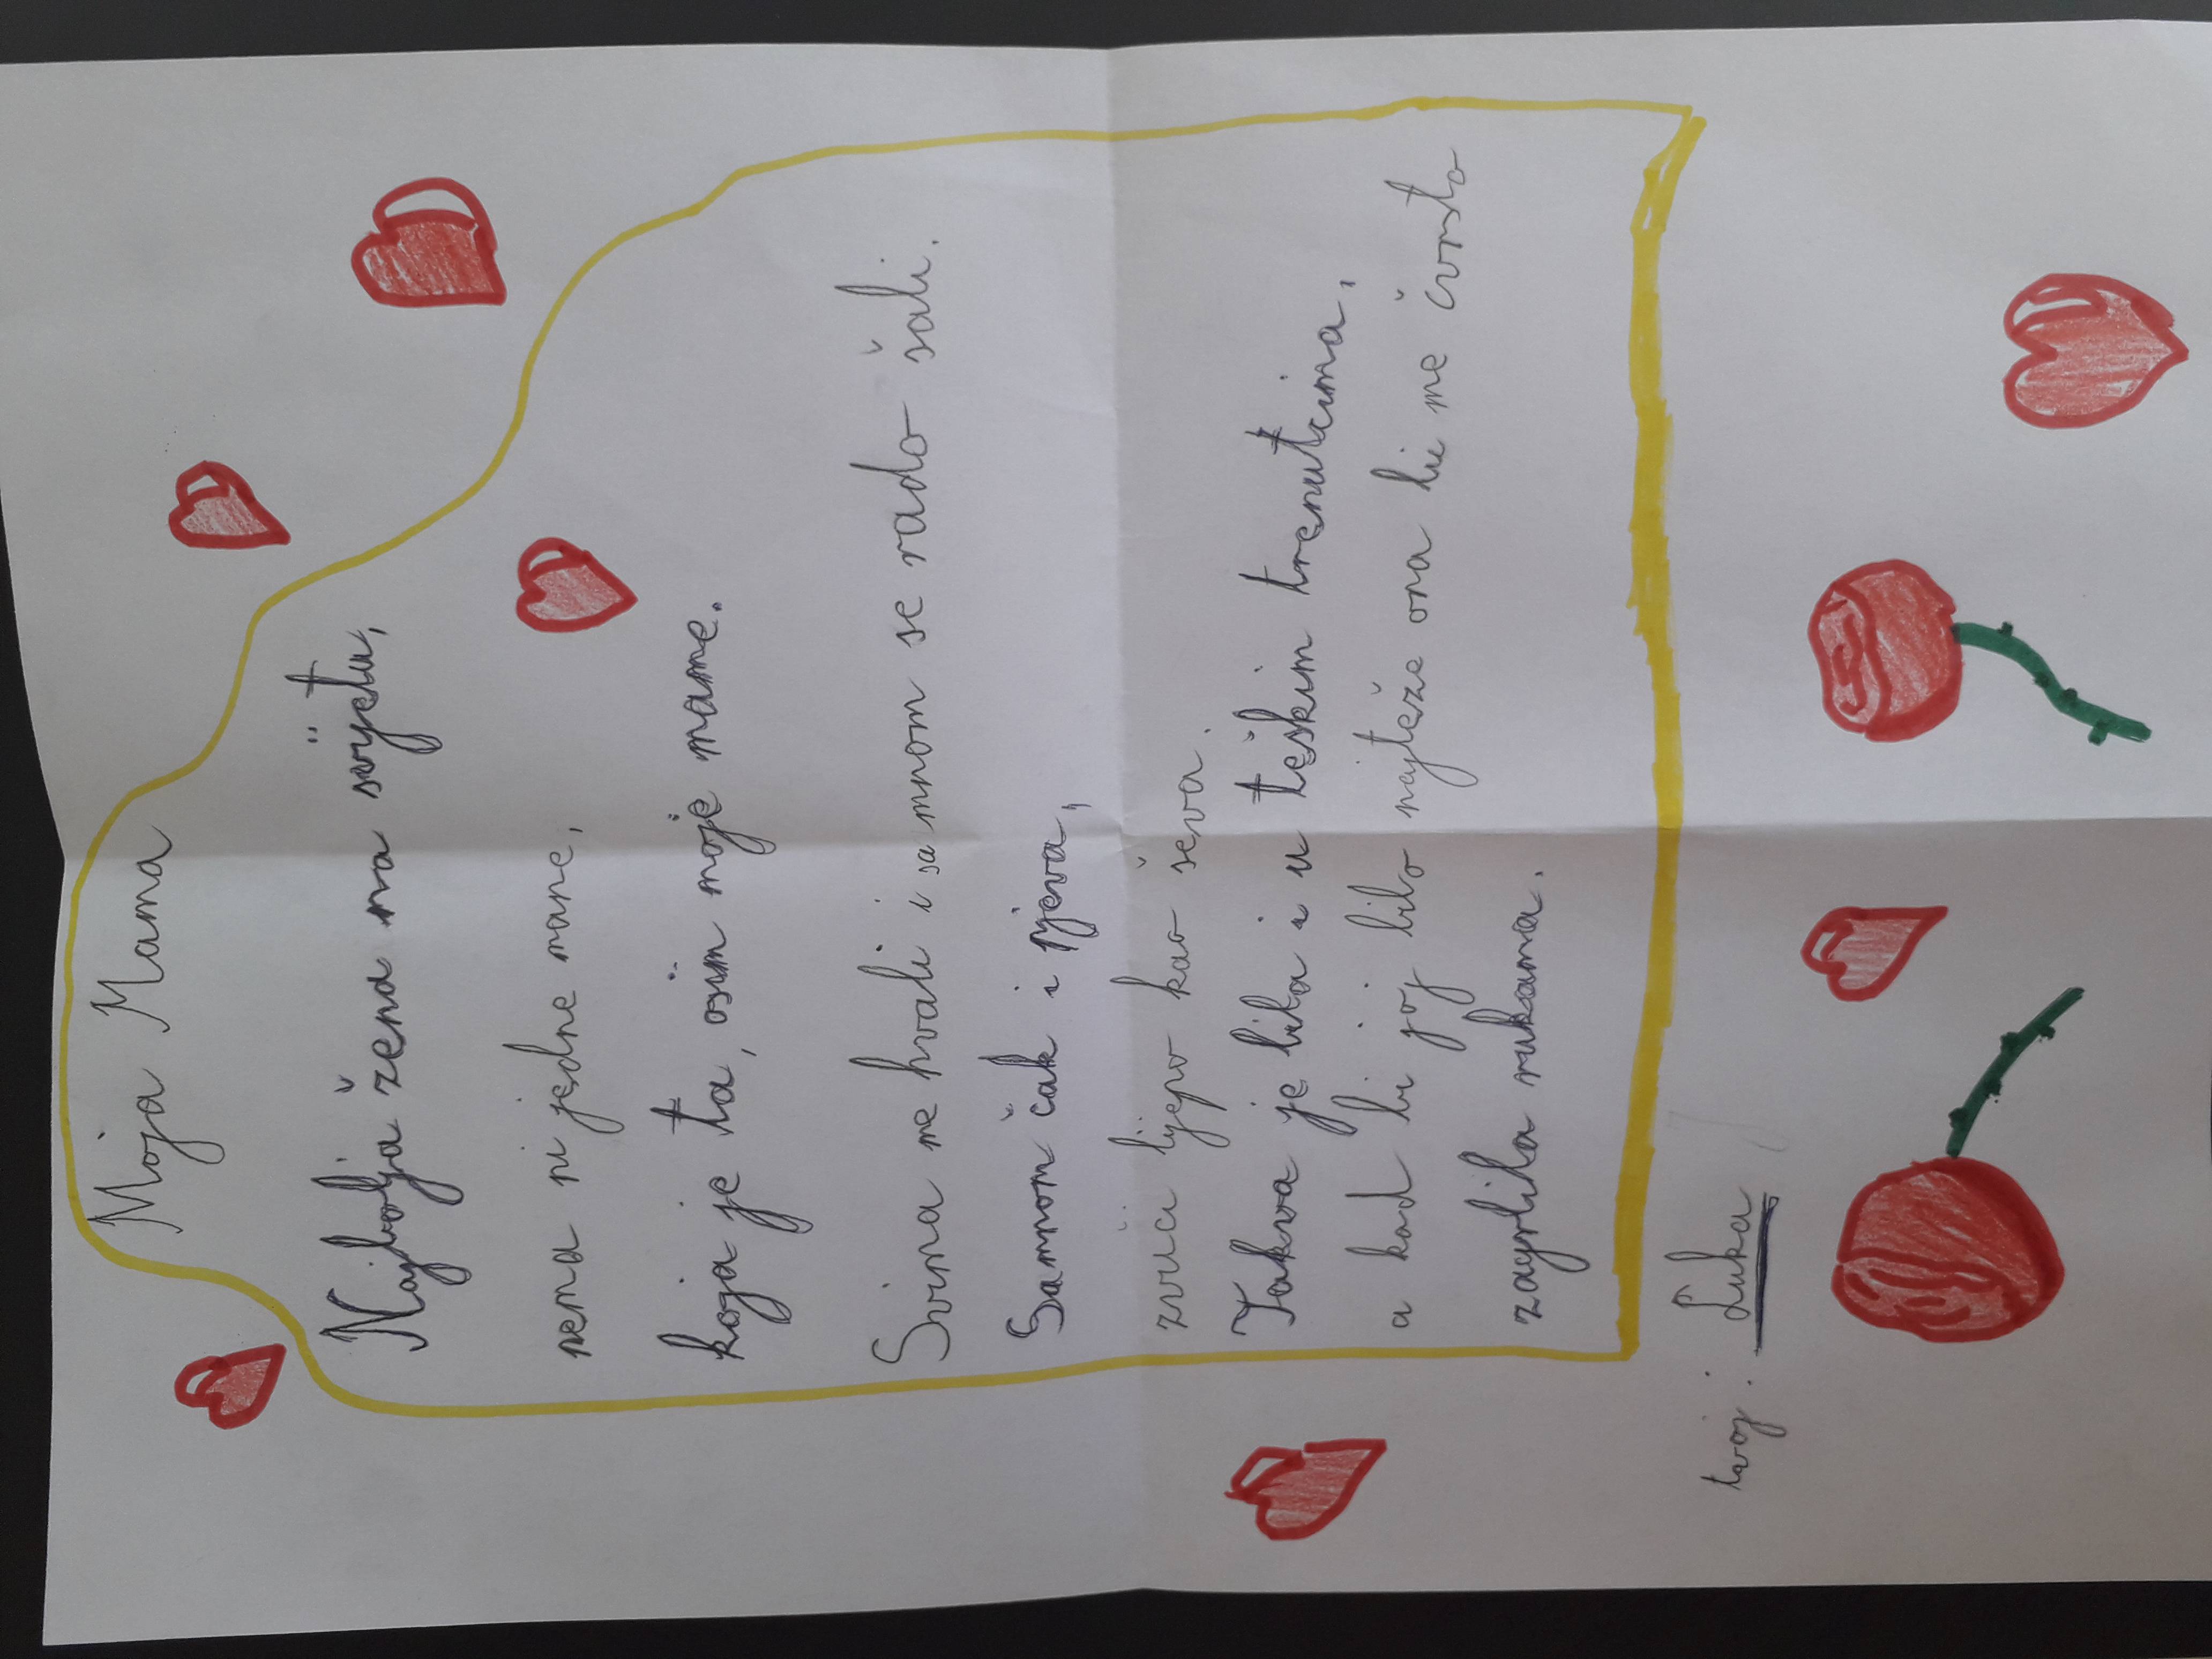 Moja Mama
Najbolja žena na svijetu,
nema ni jedne mane,
koja je ta, osim moje mame.
Svima me hvali i sa mnom se rado šali.
Samnom čak i pjeva,
zvuči lijepo kao ševa.
Takva je bila i u teškim trenutcima,
a kad bi joj bilo najteže ona bi me čvrsto
zagrlila rukama.
tvoj: Luka